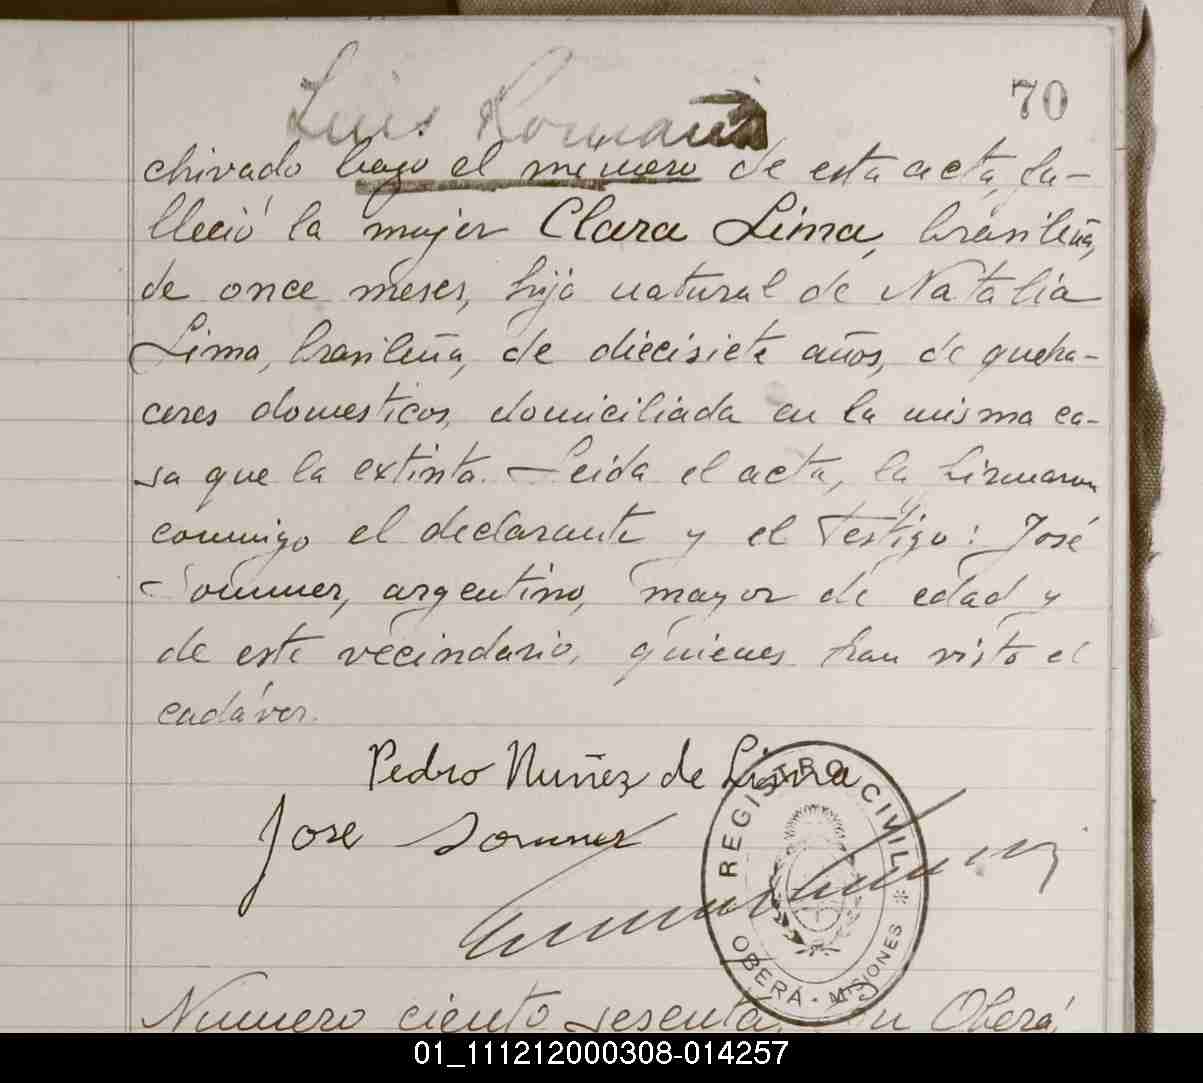 Luis Romans
70
chivado bajo el número de esta acta, fa-
lleció la mujer Clara Lima, brasileña,
de once meses, hija natural de Natalia
Lima, brasileña, de diecisiete años, de queha-
ceres domesticos, domiciliada en la misma ca-
sa que la extinta. Leida el acta, la firmaron
conmigo el declarante y el testigo: José
Sommer, argentino, mayor de edad y
de este vecindario, quienes han visto el
cadáver.
Pedro Nuñez de Lima
Jose Sommer
REGISTRO CIVIL
OBERÁ - MISIONES
Número ciento sesenta, En Oberá
01_111212000308-014257